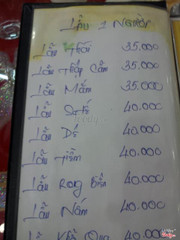 Lẩu 1 Người
Lẩu Thái 35.000
Lẩu Thập Cẩm 35.000
Lẩu Mắm 35.000
Lẩu 40.000
Lẩu Dê 40.000
Lẩu Tiềm 40.000
Lẩu Rong Biển 40.000
Lẩu Nấm 40.000
Lẩu 40.000